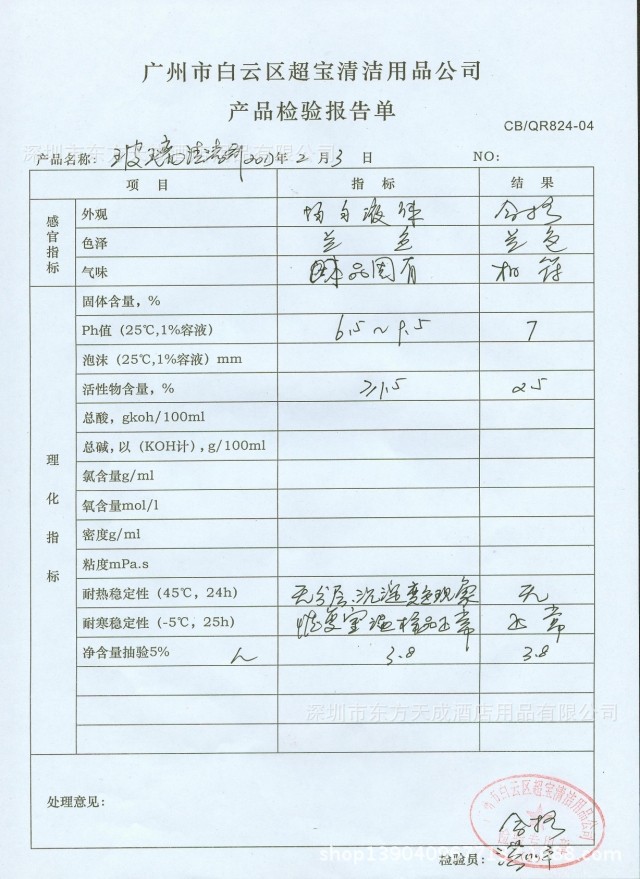 广州市白云区超宝清洁用品公司
产品检验报告单
CB/QR824-04
深圳市东方天成酒店用品有限公司
产品名称: 玻璃清洁剂 年 2 月 3 日 NO:
项目 指标 结果
感官指标
外观 均匀液体 合格
色泽 兰色 兰色
气味 固有 相符
理化指标
固体含量,%
Ph值(25℃,1%容液) 6.5~9.5 7
泡沫(25℃,1%容液)mm
活性物含量,% ≥1.5 25
总酸,gkoh/100ml
总碱,以(KOH计),g/100ml
氯含量g/ml
氧含量mol/l
密度g/ml
粘度mPa.s
耐热稳定性(45℃,24h) 无分层、沉淀变色现象 无
耐寒稳定性(-5℃,25h) 恢复室温样品正常 正常
净含量抽验5% 3.8 3.8
深圳市东方天成酒店用品有限公司
处理意见:
广州市白云区超宝清洁用品公司
合格
检验员: